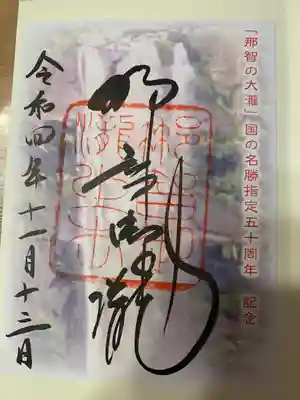 「那智の大瀧」国の名勝指定五十周年 記念
那智御瀧
令和四年十一月十三日